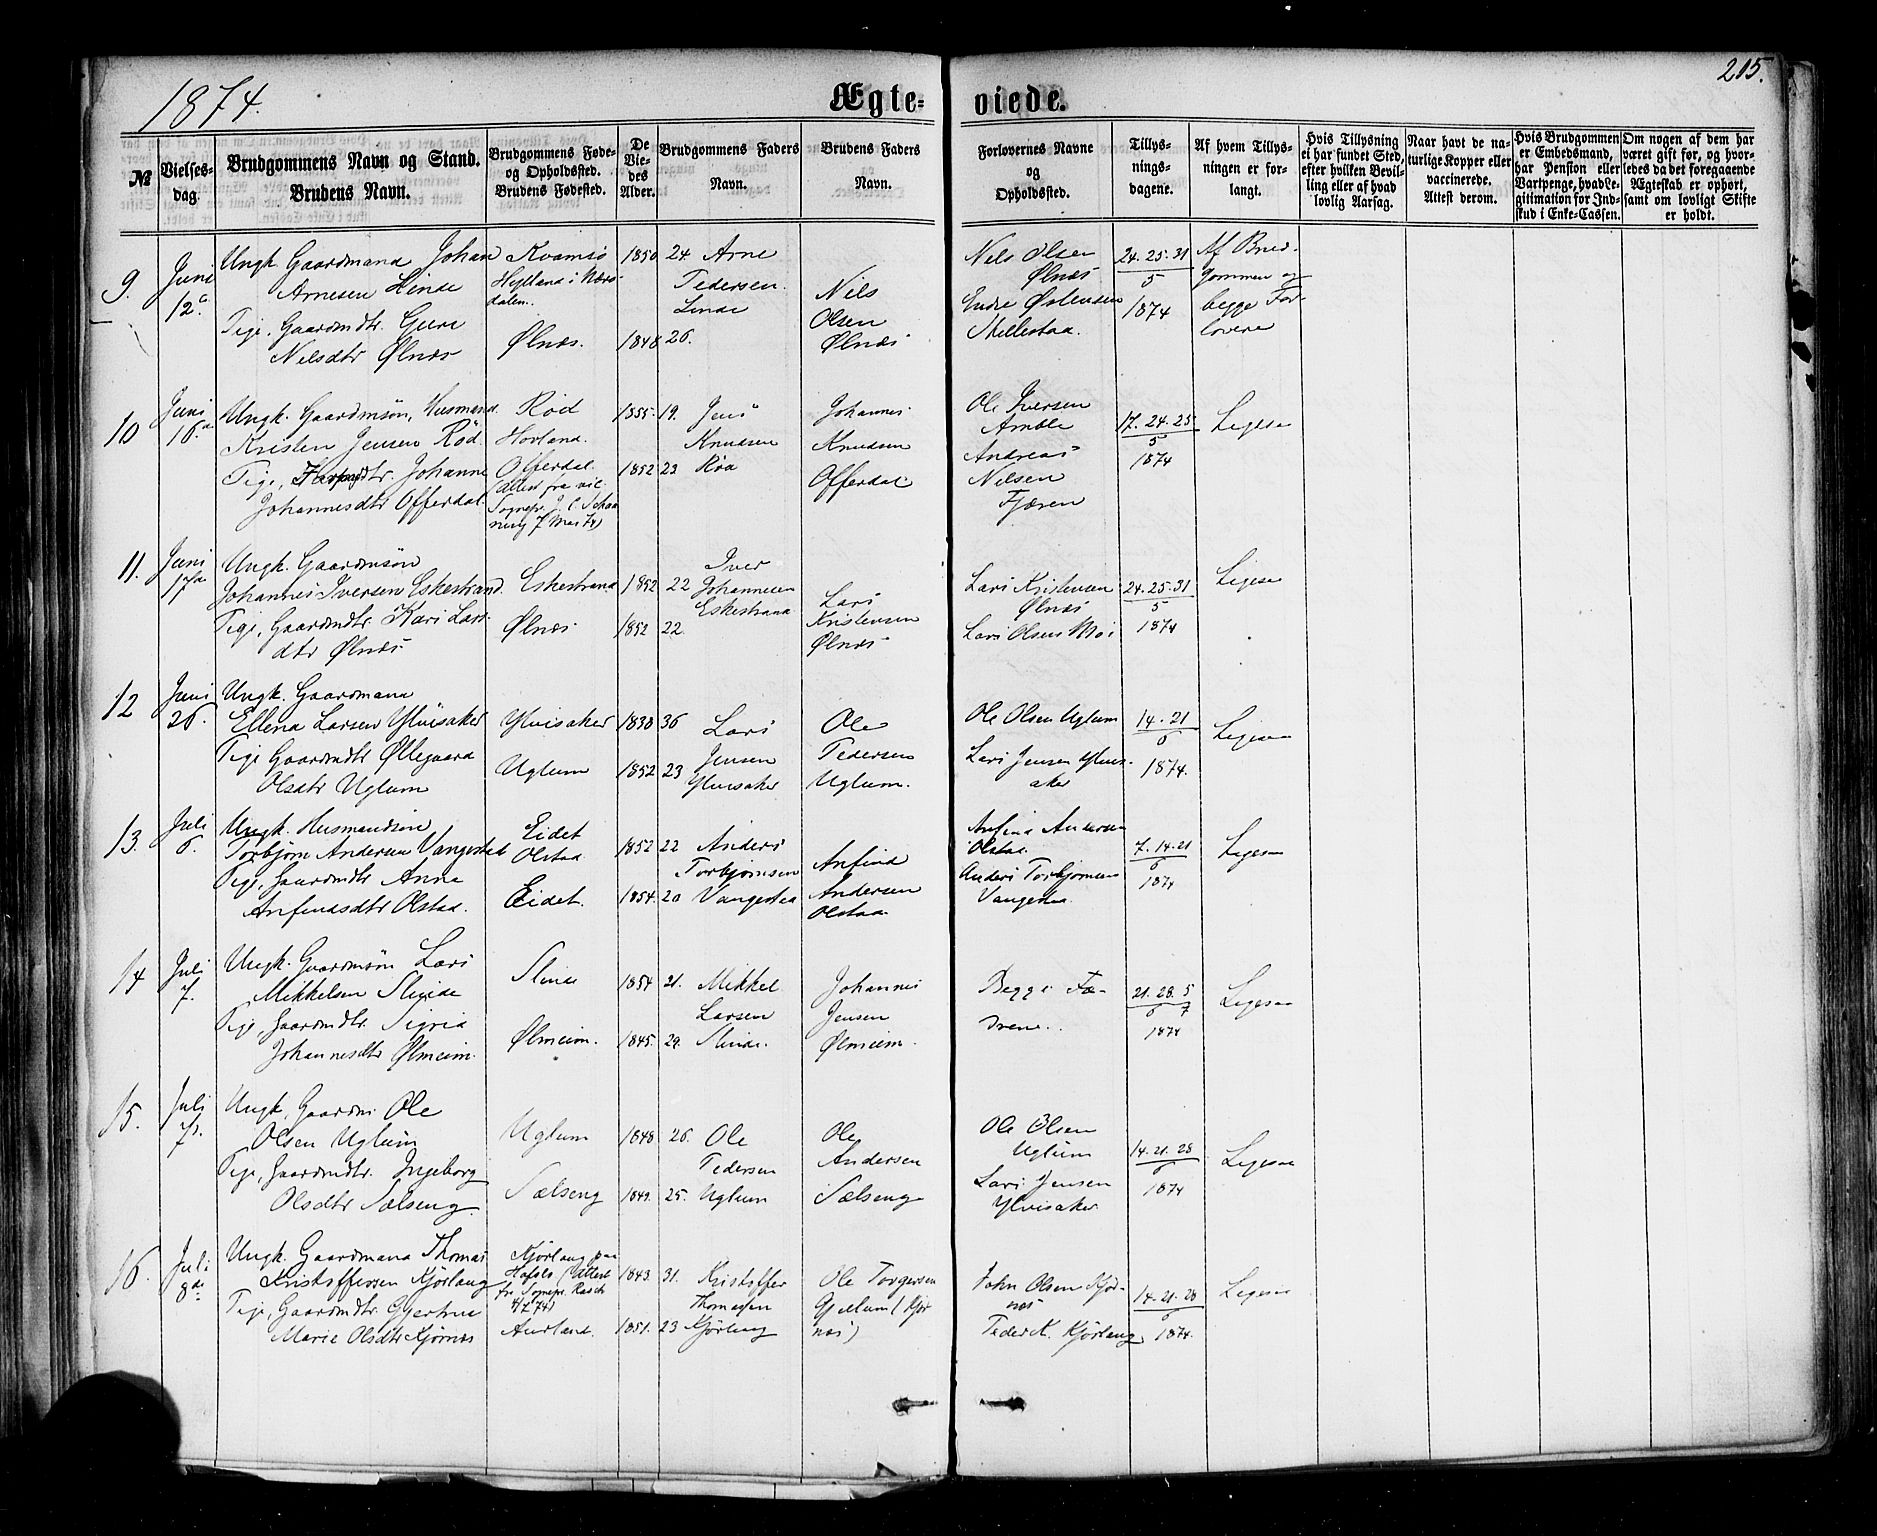 1874.
Ægte-
viede.
215.
№
Vielses-
dag.
Brudgommens Navn og Stand.
Brudens Navn.
Brudgommens Føde-
og Opholdssted.
Brudens Fødested.
De
Vie-
des
Alder.
Brudgommens Faders
Navn.
Brudens Faders
Navn.
Forlovernes Navne
og
Opholdssted.
Tillys-
nings-
dagene.
Af hvem Tillys-
ningen er for-
langt.
Hvis Tillysning
ei har fundet Sted,
efter hvilken Bevil-
ling eller af hvad
lovlig Aarsag.
Naar havt de na-
turlige Kopper eller
vaccinerede.
Attest derom.
Hvis Brudgommen
er Embedsmand,
har Pension eller
Vartpenge, hvad Le-
gitimation for Ind-
skud i Enke-Cassen.
Om nogen af dem har
været gift før, og hvor-
ledes da det foregaaende
Ægteskab er ophørt,
samt om lovligt Skifte
er holdt.
9.
Juni
12.
Ungk. Gaardmand Johan
Arnesen Linde
Pige, Gaardmdtr. Guri
Nielsdtr Ølnæs
Kvamsö
dalem.
Ølnæs.
1850 24
1848 26.
Arne
Pedersen
Linde
Nils
Olsen
Ølnæs
Nils Olsen
Ølnæs
Endre Østensen
Skillestad.
24. 25. 31
5
1874
Af Brud-
gommen og
begge For-
lovere
10
Juni
16.
Ungk. Gaardmsøn, Husmand
Kristen Jensen Röd
Pige, dtr. Johanne
Johannesdtr Offerdal
Röd
Hovland.
Offerdal
(Attest fra
Sognepr.
7 Mai 74)
1855. 19.
1852 23
Jens
Knudsen
Röd
Johannes
Knudsen
Offerdal
Ole Iversen
Amble
Andreas
Nilsen
Fjæren
17. 24. 25
5
1874
Ligesaa
11.
Juni
17de
Ungk. Gaardmsøn
Johannes Iversen Eskestrand
Pige, Gaardmdtr. Kari Lars-
dtr Ølnæs
Eskestrand
Ølnæs
1852 22
1852 22.
Iver
Johannesen
Eskestrand
Lars
Kristensen
Ølnæs
Lars Kristensen
Ølnæs
Lars Olsen Moe
24. 25. 31
5
1874
Ligesaa
12
Juni
26.
Ungk. Gaardmand
Ellend Larsen Ylvisaker
Pige Gaardmdtr Øllegaard
Olsdtr Uglum
Ylvisaker
Uglum
1838 36
1852 23
Lars
Jensen
Ylvisaker
Ole
Pedersen
Uglum.
Ole Olsen Uglum
Lars Jensen Ylvis-
aker
14. 21
6
1874.
Ligesaa
13.
Juli
6.
Ungk. Husmandsön
Torbjørn Andersen Vangestad
Pige, Gaardmdtr Anne
Anfindsdtr Olstad.
Eidet
Olstad
Eidet.
1852 22
1854. 20
Anders
Torbjørnsen
Vangestad
Anfind
Andersen
Olstad
Anfind Andersen
Olstad.
Anders Torbjørnsen
Vangestad.
7. 14. 21
6
1874
Ligesaa
14
Juli
7.
Ungk. Gaardmsøn Lars
Mikkelsen Slinde
Pige, Gaardmdtr. Sigrid
Johannesdtr Ølmeim.
Slinde
Ølmeim.
1854 21.
1845. 29.
Mikkel
Larsen
Slinde.
Johannes
Jensen
Ølmeim.
Begge Fæ-
drene.
21. 28. 5
6 7
1874
Ligesaa
15.
Juli
7.
Ungk, Gaardm. Ole
Olsen Uglum
Pige, Gaardmdtr. Ingeborg
Olsdtr Sælseng.
Uglum
Sælseng
1848 26.
1849. 25.
Ole
Pedersen
Uglum
Ole
Andersen
Sælseng
Ole Olsen
Uglum
Lars Jensen
Ylvisaker
14. 21. 28
6
1874
Ligesaa
16.
Juli
8de
Ungk. Gaardmand Thomas
Kristoffersen Kjörlaug
Pige, Gaardmdtr. Gjertrud
Marie Olsdtr Kjørnæs
Kjörlaug paa
Hafslo (Attest
fr. Sognepr. Rasch
4/7 74)
Aurland.
1843. 31.
1851. 23
Kristoffer
Thomassen
Kjörlaug
Ole Torgersen
Gjellum (Kjør-
næs)
John Olsen Kjør-
næs
Peder K. Kjörlaug
14. 21. 28
6
1874.
Ligesaa